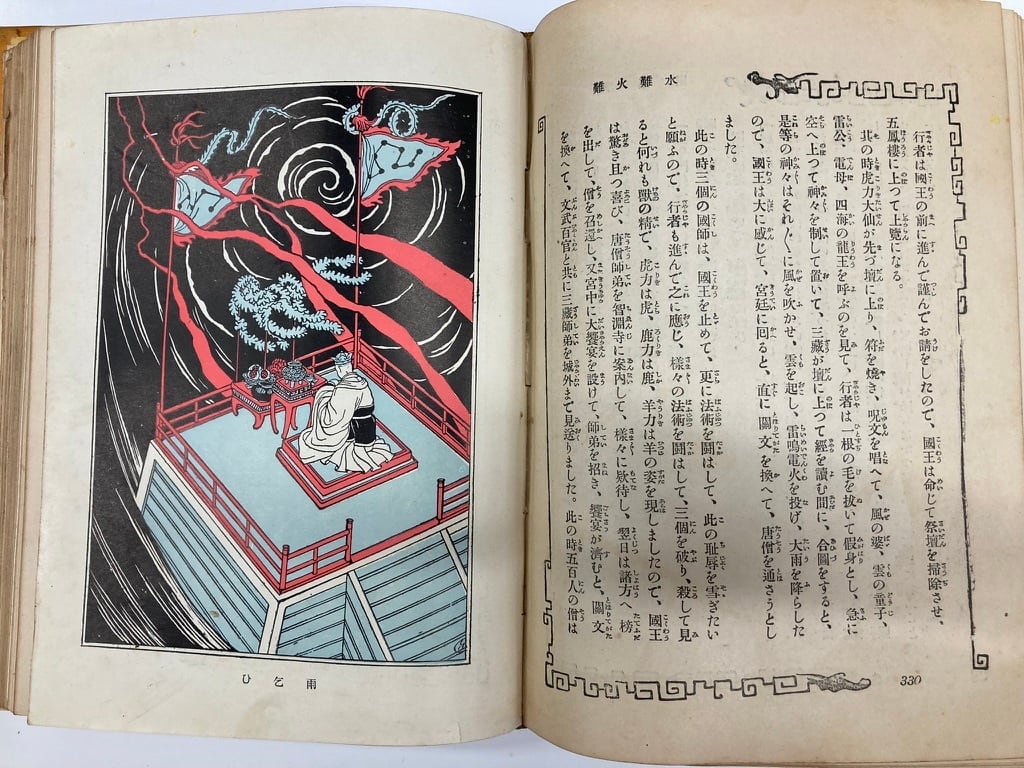 水難火難
行者は國王の前に進んで謹んでお請をしたので、國王は命じて祭壇を掃除させ、
五鳳樓に上つて上覽になる。
其の時虎力大仙が先づ壇に上り、符を燒き、呪文を唱へて、風の婆、雲の童子、
雷公、電母、四海の龍王を呼ぶのを見て、行者は一根の毛を拔いて假身とし、急に
空へ上つて神々を制して置いて、三藏が壇に上つて經を讀む間に、合圖をすると、
是等の神々はそれ〴〵に風を吹かせ、雲を起し、雷鳴電火を投げ、大雨を降らした
ので、國王は大に感じて、宮廷に回ると、直に關文を換へて、唐僧を通さうとし
ました。
此の時三個の國師は、國王を止めて、更に法術を鬪はして、此の恥辱を雪ぎたい
と願ふので、行者も進んで之に應じ、樣々の法術を鬪はして、三個を破り、殺して見
ると何れも獸の精で、虎力は虎、鹿力は鹿、羊力は羊の姿を現しましたので、國王
は驚き且つ喜び、唐僧師弟を智淵寺に案内して、樣々に欵待し、翌日は諸方へ榜
を出して、僧を召還し、又宮中に大饗宴を設けて、師弟を招き、饗宴が濟むと、關文
を換へて、文武百官と共に三藏師弟を城外まで見送りました。此の時五百人の僧は
330
雨乞ひ